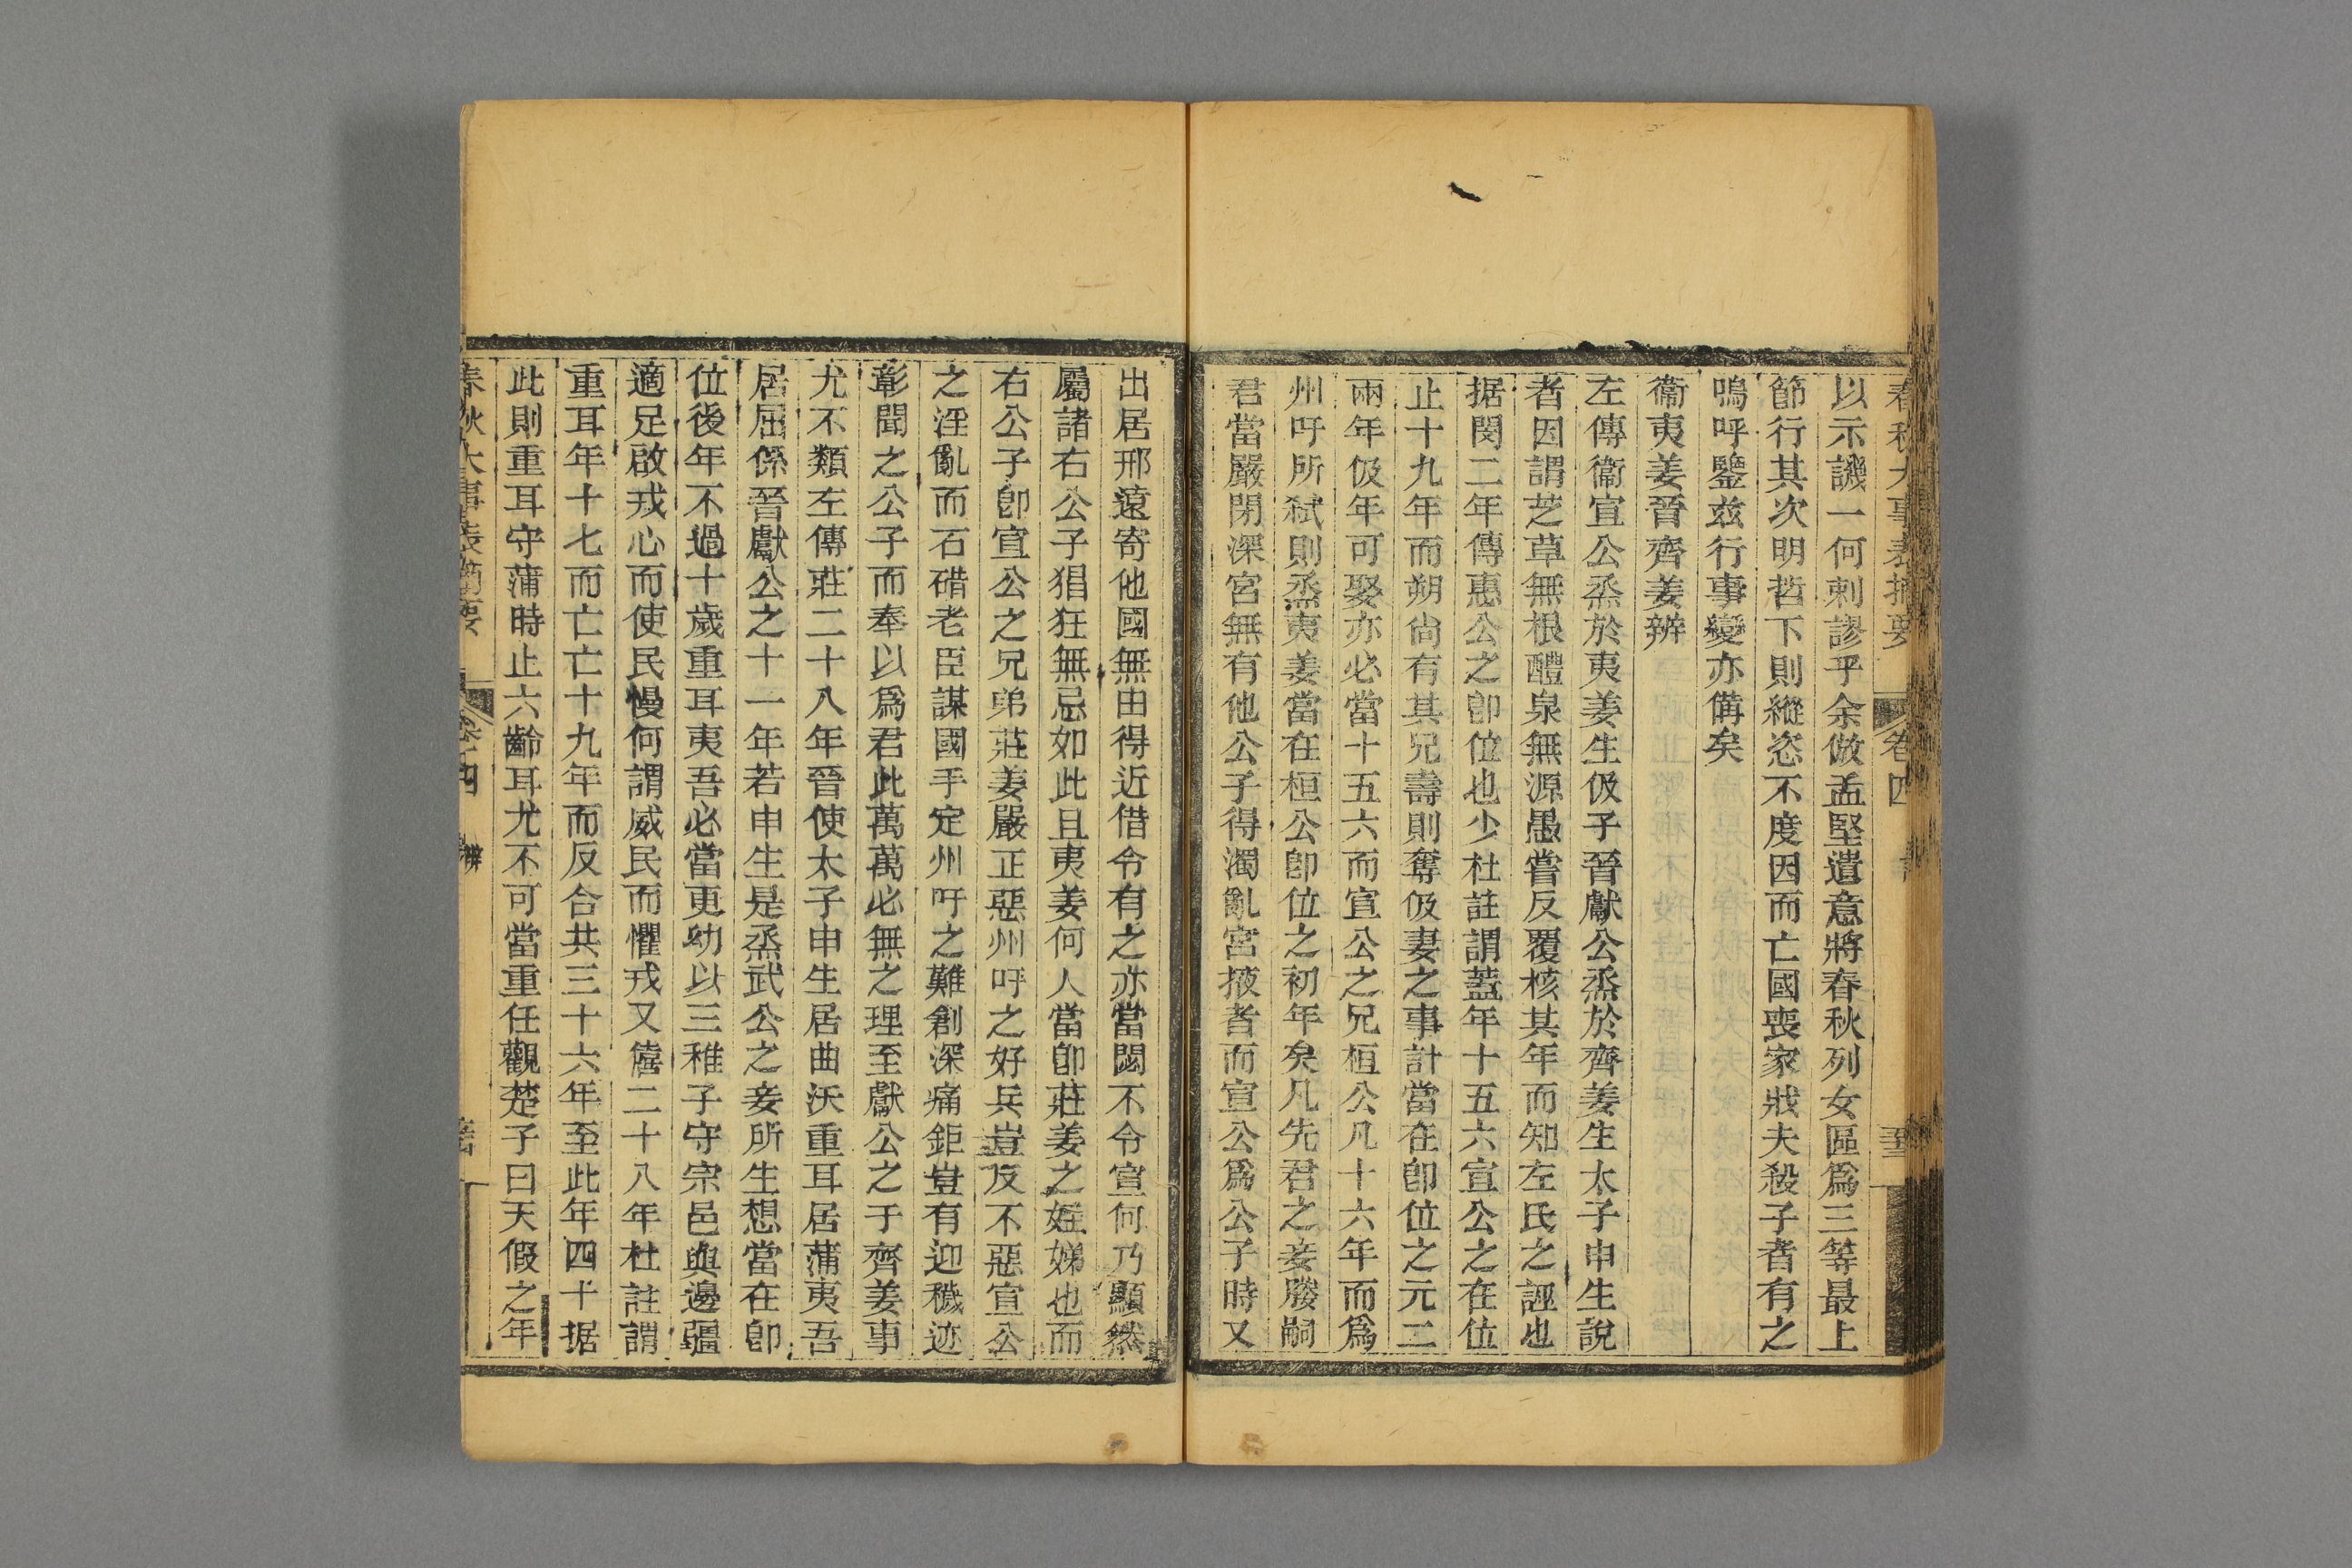 春秋大事表摘要
卷四
以示譏一何刺謬乎余倣孟堅遺意將春秋列女區爲三等最上
節行其次明哲下則縱恣不度因而亡國喪家戕夫殺子者有之
嗚呼鑒兹行事變亦備矣
衞夷姜晉齊姜辨
左傳衞宣公烝於夷姜生伋子晉獻公烝於齊姜生太子申生說
者因謂芝草無根醴泉無源愚嘗反覆核其年而知左氏之誣也
据閔二年傳惠公之卽位也少杜註謂蓋年十五六宣公之在位
止十九年而朔尙有其兄壽則奪伋妻之事計當在卽位之元二
兩年伋年可娶亦必當十五六而宣公之兄桓公凡十六年而爲
州吁所弑則烝夷姜當在桓公卽位之初年矣凡先君之妾媵嗣
君當嚴閉深宮無有他公子得濁亂宮掖者而宣公爲公子時又
出居邢遠寄他國無由得近借令有之亦當閟不令宣何乃顯然
屬諸右公子猖狂無忌如此且夷姜何人當卽莊姜之姪娣也而
右公子卽宣公之兄弟莊姜嚴正惡州吁之好兵豈反不惡宣公
之淫亂而石碏老臣謀國手定州吁之難創深痛鉅豈有迎穢迹
彰聞之公子而奉以爲君此萬萬必無之理至獻公之于齊姜事
尤不類左傳莊二十八年晉使太子申生居曲沃重耳居蒲夷吾
居屈係晉獻公之十一年若申生是烝武公之妾所生想當在卽
位後年不過十歲重耳夷吾必當更幼以三稚子守宗邑與邊疆
適足啟戎心而使民慢何謂威民而懼戎又僖二十八年杜註謂
重耳年十七而亡亡十九年而反合共三十六年至此年四十据
此則重耳守蒲時止六齡耳尤不可當重任觀楚子曰天假之年
春秋大事表摘要
卷四
辨